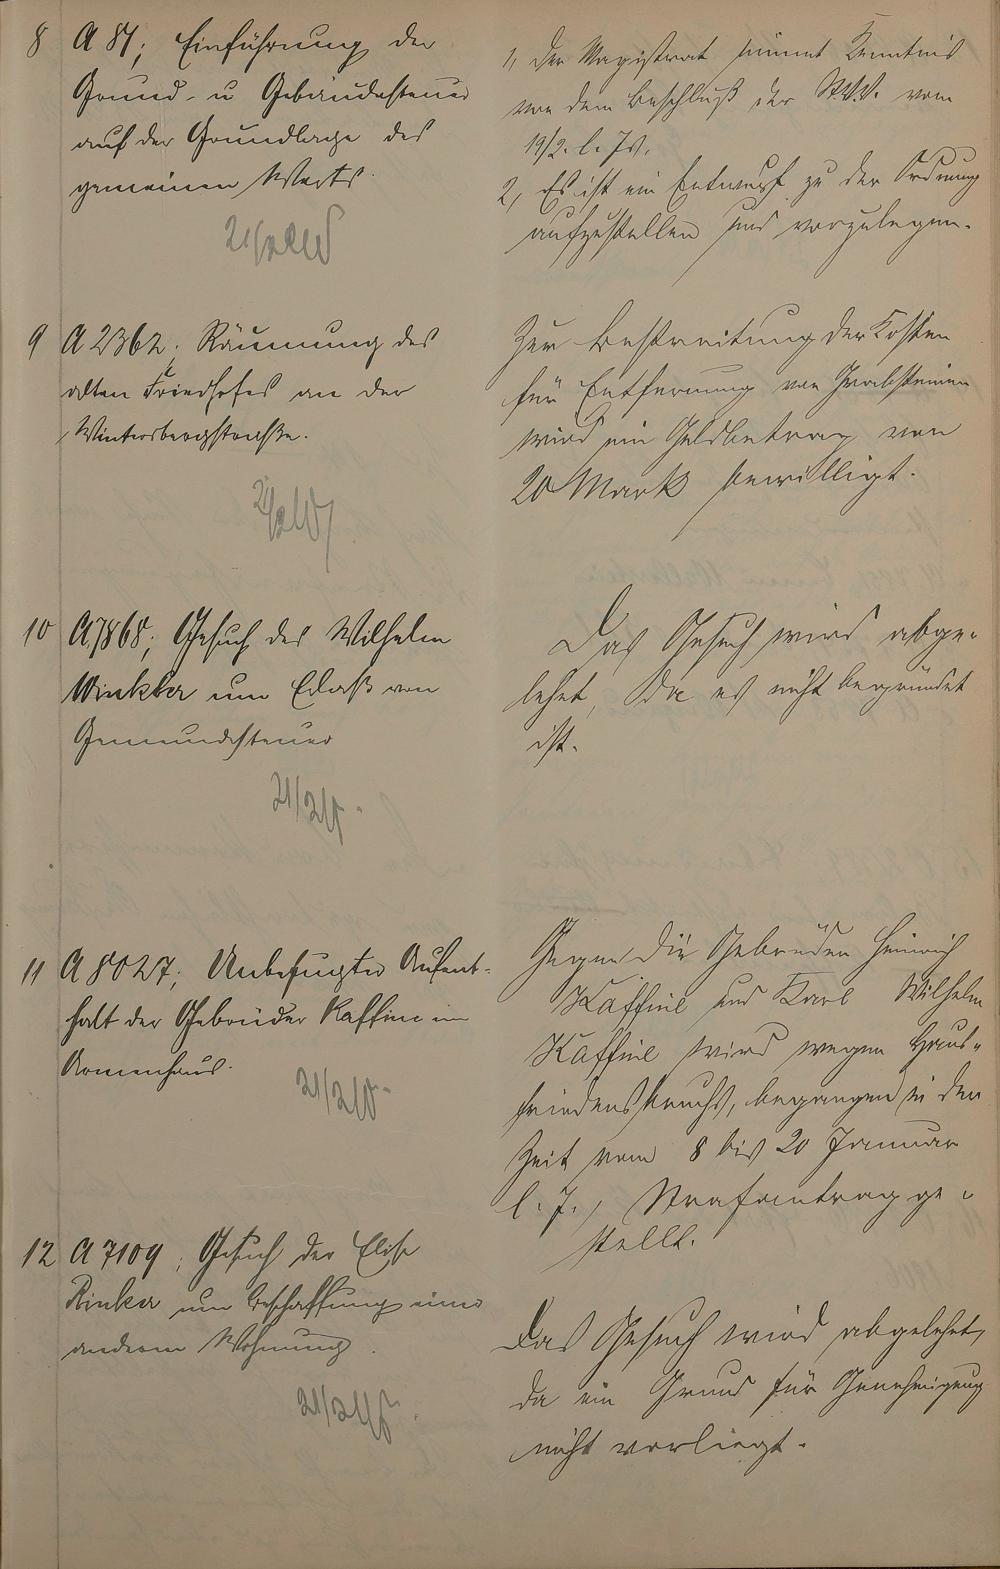 8 A 87; Einführung der
Grund- u Gebäudesteuer
auf der Grundlage des
gemeinen Werts.
21/2
1, Der Magistrat nimmt Kenntnis
von dem Beschluß der St.V.V. vom
19/2. l. Js.
2, Es ist ein Entwurf zu der Ordnung
aufzustellen und vorzulegen.
9 A 2362. Räumung des
alten Friedhofes an der
Wintersbergstraße.
Zur Bestreitung der Kosten
für Entfernung von Grabsteinen
wird ein Geldbetrag von
20 Mark bewilligt.
10 A 7868; Gesuch des Wilhelm
Winkler um Erlaß von
Gemeindesteuer
21/2
Das Gesuch wird abge-
lehnt, da es nicht begründet
ist.
11 A 8027; Unbefugter Aufent-
halt der Gebrüder Kaffine im
Armenhaus.
21/2
Gegen die Gebrüder Heinrich
Kaffine und Karl Wilhelm
Kaffine wird wegen Haus-
friedensbruchs, begangen in der
Zeit vom 8 bis 20 Januar
l. J., Strafantrag ge-
stellt.
12 A 7109; Gesuch der Elise
Rinker um Beschaffung einer
anderen Wohnung.
21/2
Das Gesuch wird abgelehnt,
da ein Grund für Genehmigung
nicht vorliegt.